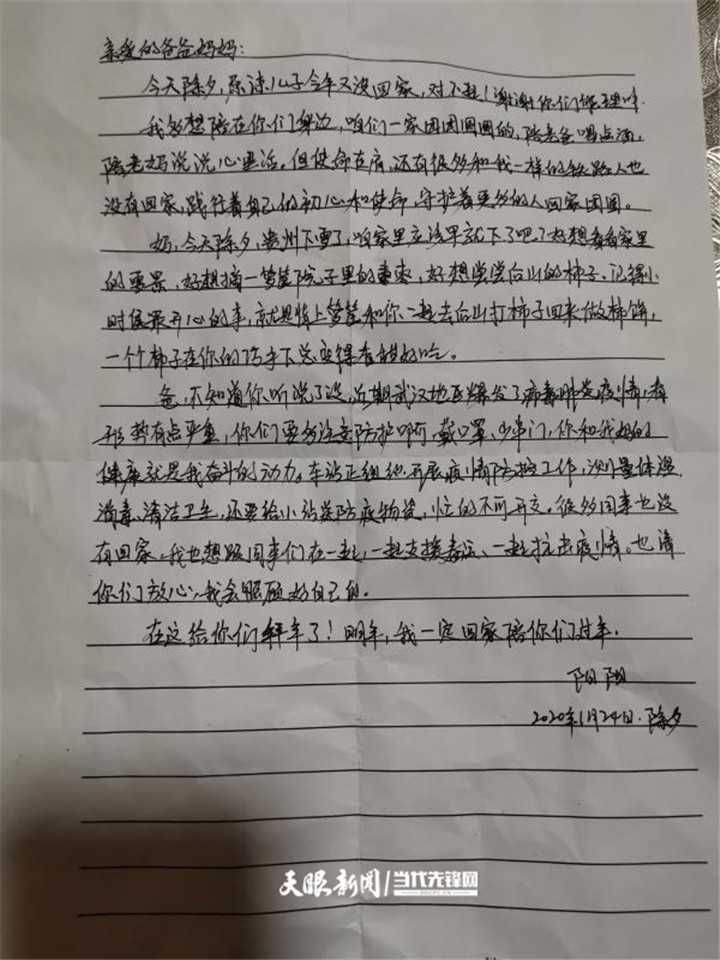 亲爱的爸爸妈妈：
今天除夕，原谅儿子今年又没回家，对不起！谢谢你们能理解.
我多想陪在你们身边，咱们一家团团圆圆的，陪老爸喝点酒，
陪老妈说说心里话，但使命在肩，还有很多和我一样的铁路人也
没有回家，践行着自己的初心和使命，守护着更多的人回家团圆。
妈，今天除夕，贵州下雪了，咱家里应该早就下了吧？好想看看家里
的雪景，好想摘一篮院子里的枣，好想尝尝后山的柿子。记得小
时候最开心的事，就是背上篮和你一起去后山打柿子回来做柿饼，
一个柿子在你的巧手下总变得香甜好吃。
爸，不知道你听说了没，近期武汉地区爆发了病毒肺炎疫情，
形势有点严重，你们要多注意防护啊，戴口罩，少串门，你和我妈的
健康就是我奋斗的动力。车站正组织开展疫情防控工作，测量体温、
消毒、清洁卫生，还要给小站送防疫物资，忙的不可开交。很多同事也没
有回家，我也想跟同事们在一起，一起支援春运、一起抗击疫情。也请
你们放心，我会照顾好自己的。
在这给你们拜年了！明年，我一定回家陪你们过年.
阳阳
2020年1月24日.除夕
天眼新闻 当代先锋网